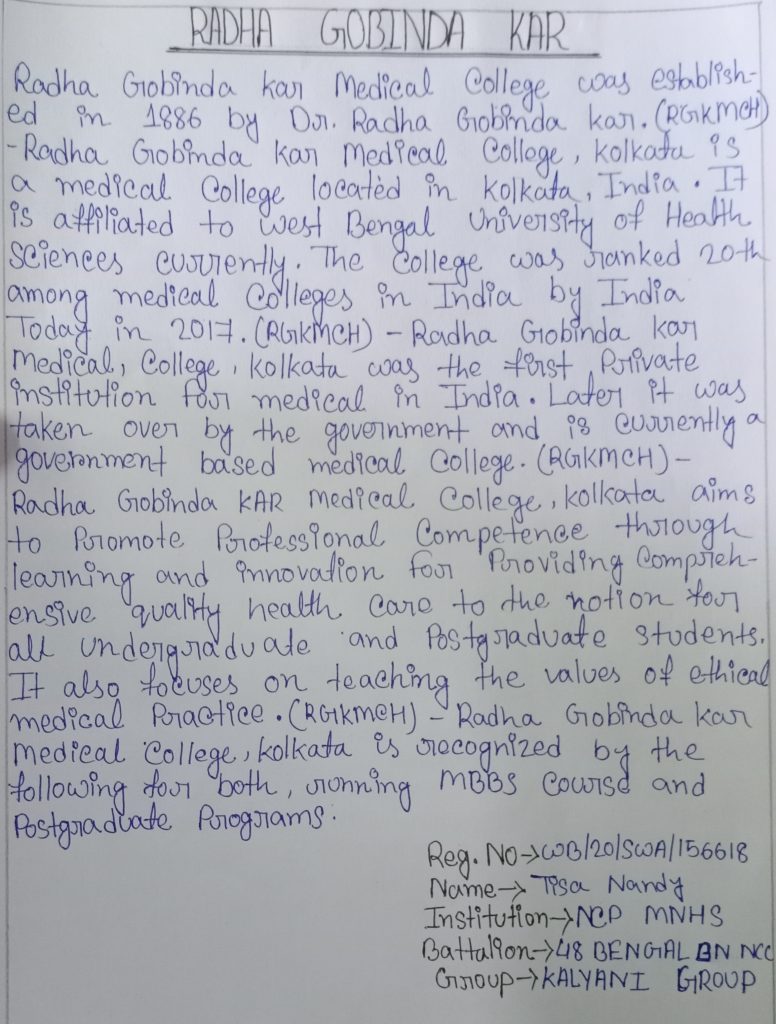 RADHA GOBINDA KAR
Radha Gobinda Kar Medical College was establish-
ed in 1886 by Dr. Radha Gobinda Kar. (RGKMCH)
- Radha Gobinda Kar Medical College, Kolkata is
a medical College located in Kolkata, India. It
is affiliated to West Bengal University of Health
Sciences currently. The College was ranked 20th
among medical Colleges in India by India
Today in 2017. (RGKMCH) - Radha Gobinda Kar
Medical, College, Kolkata was the first Private
institution for medical in India. Later it was
taken over by the government and is currently a
government based medical College. (RGKMCH) -
Radha Gobinda KAR Medical College, Kolkata aims
to Promote Professional Competence through
learning and innovation for Providing Compreh-
ensive quality health care to the notion for
all undergraduate and Postgraduate students.
It also focuses on teaching the values of ethical
medical Practice. (RGKMCH) - Radha Gobinda Kar
Medical College, Kolkata is recognized by the
following for both, running MBBS Course and
Postgraduate Programs.
Reg. No→WB/20/SWA/156618
Name→ Tisa Nandy
Institution→NCP MNHS
Battalion→48 BENGAL BN NCC
Group→KALYANI GROUP